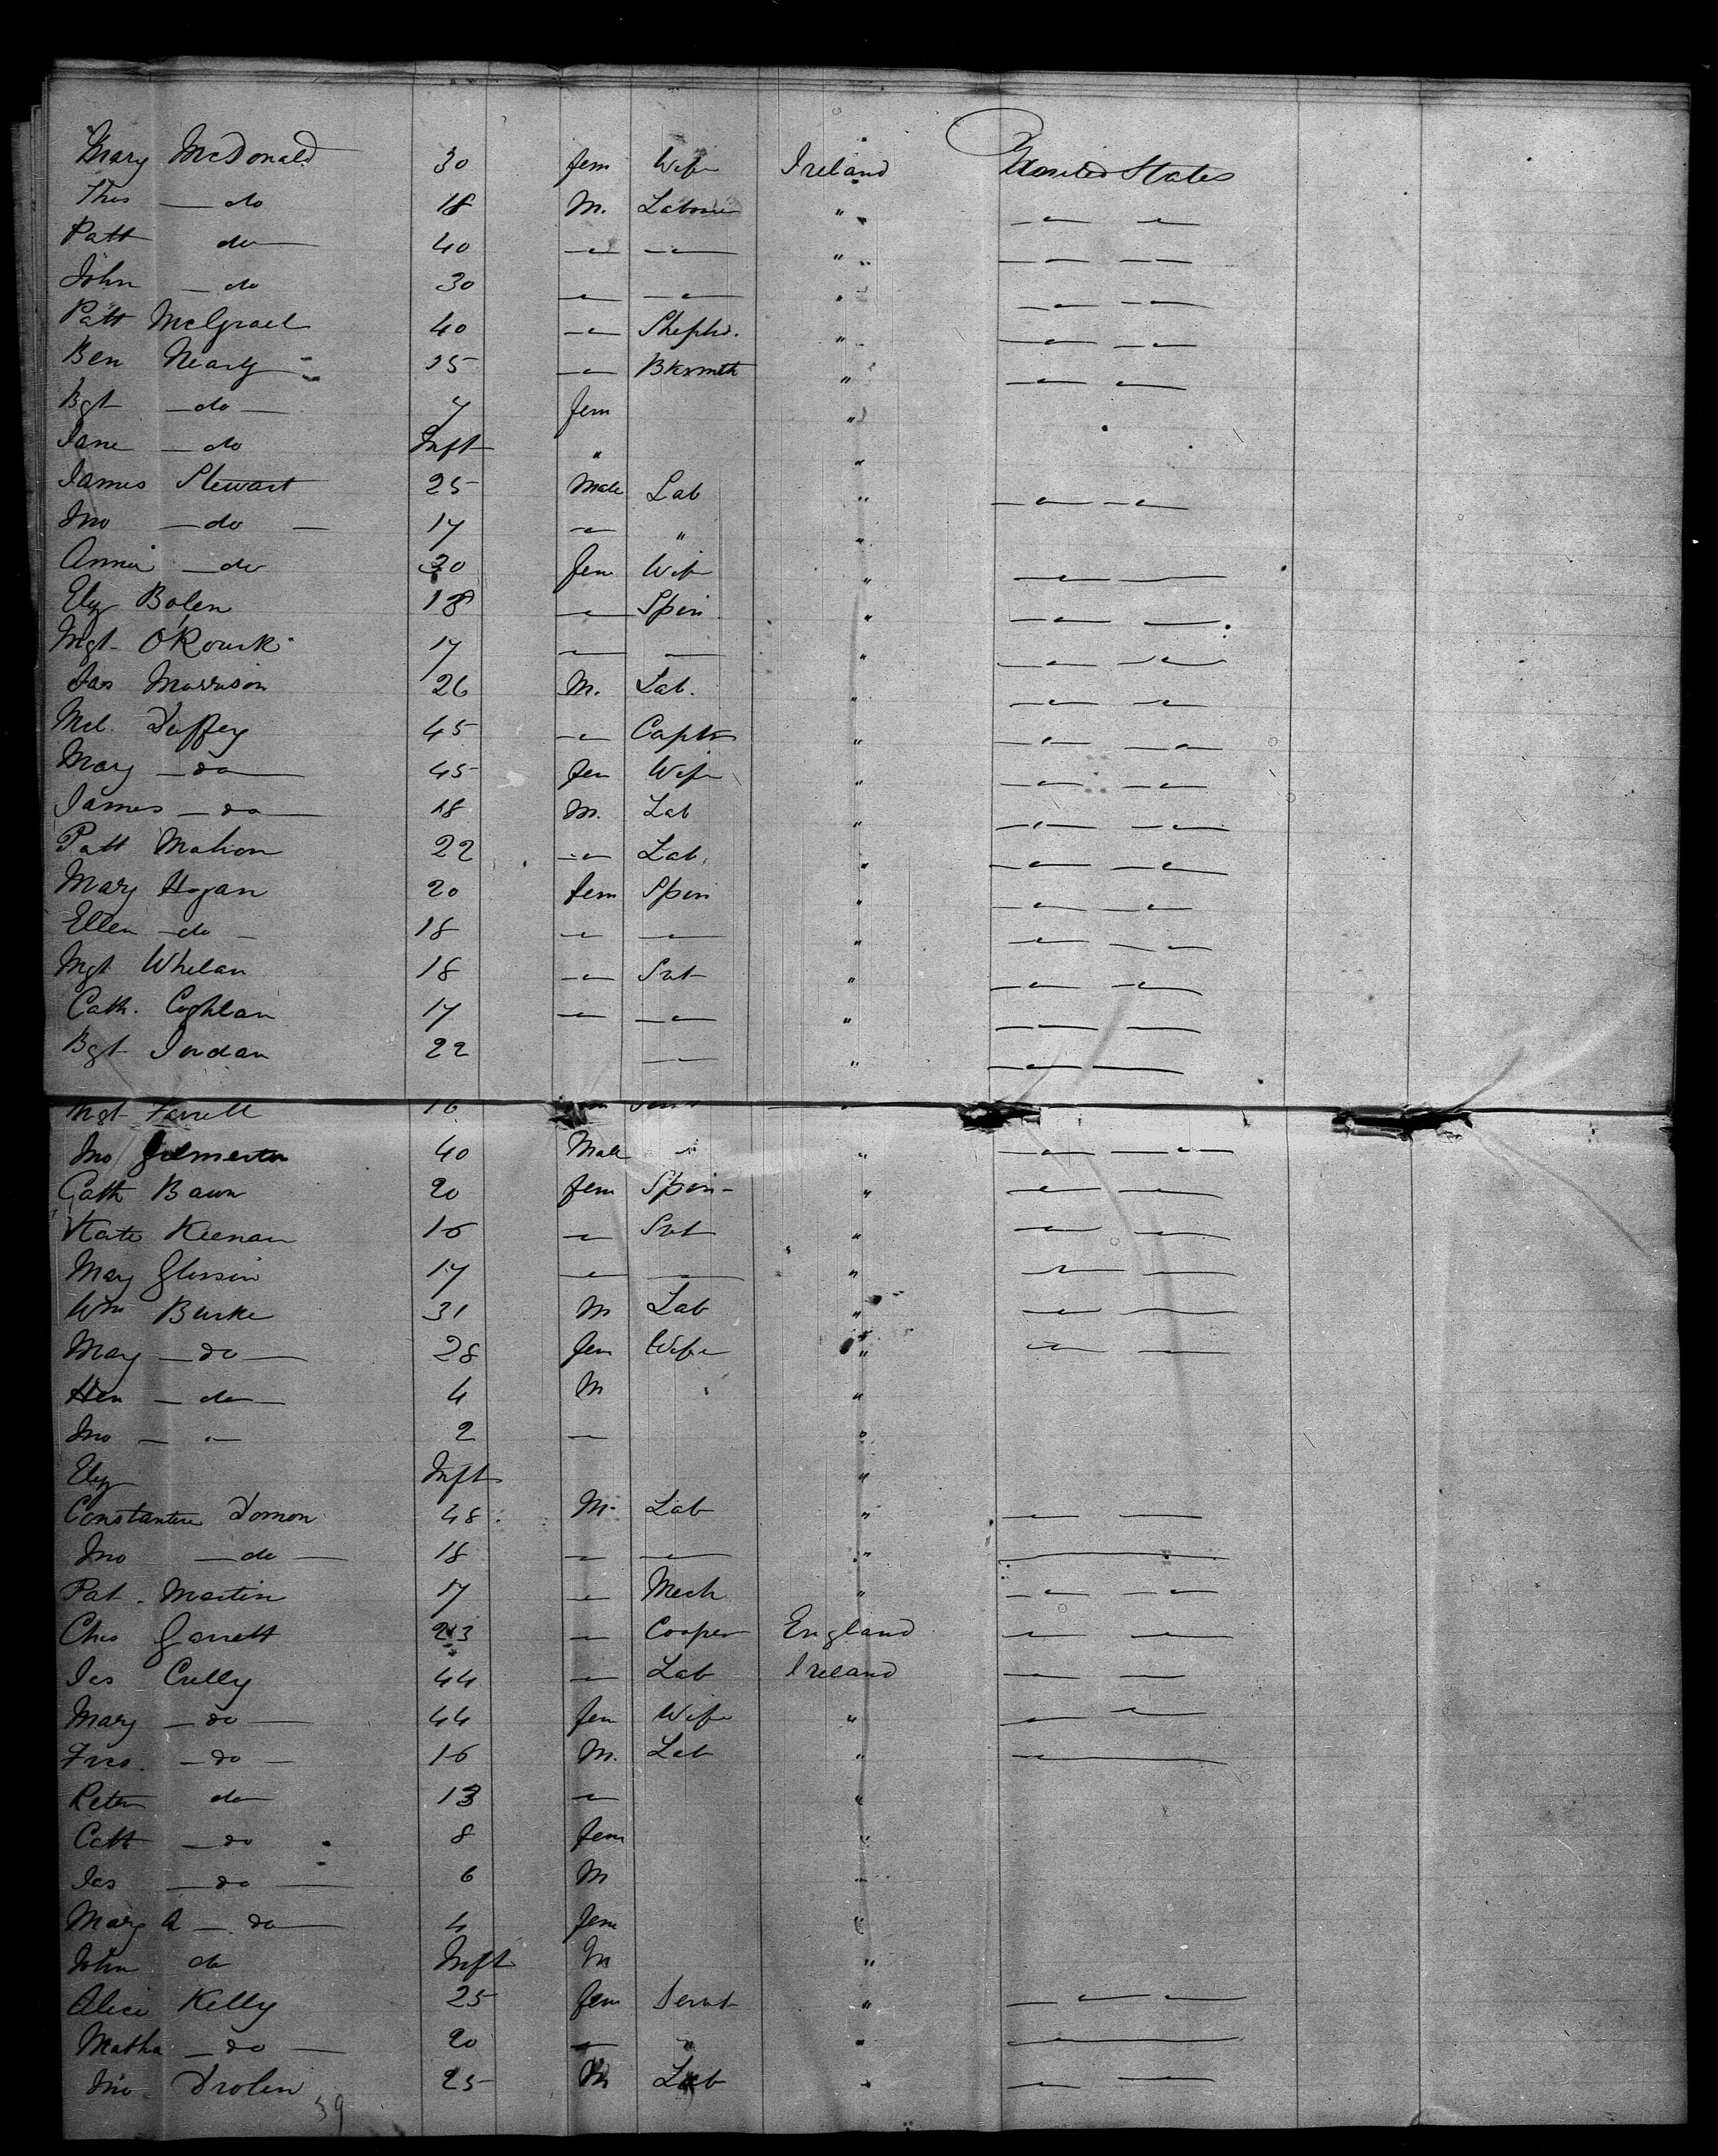 Mary McDonald 30 fem Wife Ireland United States
Thos — do 18 M. Labourer " — " — "
Patt do — 40 — " — — " — " — " — —
John — do 30 — " — — " — " — " — "
Patt McGrael 40 — " Shephd. " — " — "
Ben Nearly 25 — " Bksmth " — " — "
Bgt — do — 7 fem "
Jane — do Inft " "
James Stewart 25 Male Lab " — " — "
Jno — do — 17 — " " "
Annie — do 30 fem Wife " — " —
Elz Bolen 18 — " Spin " — " —
Mgt O'Rourk 17 — — " — " — "
Jas Morrison 26 M. Lab. " — " — "
Ml. Duffey 45 — " " — " — "
Mary — do — 45 fem Wife " — " — "
James — do — 18 M. Lab " — " — "
Patt Mahon 22 — " Lab. " — " — "
Mary Hogan 20 fem Spin " — " — "
Ellen — do — 18 — " — " — " — "
Mgt Whelan 18 — " Svt " — " — "
Cath. Coghlan 17 — " — " " — " —
Bgt Jordan 22 — " — " —
Mgt Farrell 16
Jno 40 Male " " — " — "
Cath Bawn 20 fem Spin — " — " —
Kate Keenan 16 — " Svt " — " —
Mary 17 — " — " — " —
Wm Burke 31 M Lab " — " —
Mary — do — 28 fem Wife " — " —
Hen — do — 4 M "
Jno — " — 2 — "
Elz Inft "
Constantine 48 M. Lab " — —
Jno — do — 18 — — " —
Pat. Martin 17 — " Mech " — " — "
Chs Garrett 23 — Cooper England — " —
Jas Cully 44 — " Lab Ireland — " —
Mary — do — 44 fem Wife " — " — "
Frs. — do — 16 M. Lab " — " —
Peter do — 13 — " "
Cath — do 8 fem "
Jas — do — 6 M "
Mary A — do — 4 fem "
John do Inft M "
Alice Kelly 25 fem Servt " — " — "
Matha — do — 20 — " " " —
Jno 25 M Lab " — " —
39